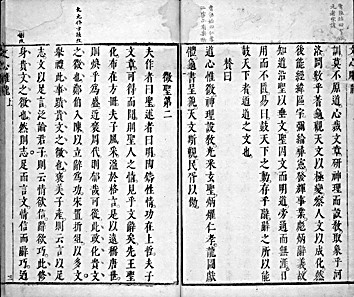 訓莫不原道心裁文章研神理而設教取象乎河
洛問數乎蓍龜觀天文以極變察人文以成化然
後能經緯區宇彌綸彝憲發輝事業彪炳辭義故
知道沿聖以垂文聖因文而明道旁通而無涯日
用而不匱易曰鼓天下之動者存乎辭辭之所以能
鼓天下者迺道之文也
贊曰
道心惟微神理設教光采玄聖炳燿仁孝龍圖獻
體龜書呈貌天文斯觀民胥以傚
徵聖第二
夫作者曰聖述者曰明陶鑄性情功在上哲夫子
文章可得而聞則聖人之情見乎文辭矣先王聖
化布在方冊夫子風采溢於格言是以遠稱唐世
則煥乎為盛近褒周代則郁哉可從此政化貴文
之徵也鄭伯入陳以立辭為功宋置折俎以多文
舉禮此事蹟貴文之徵也褒美子產則云言以足
志文以足言泛論君子則云情欲信辭欲巧此修
身貴文之徵也然則志足而言文情信而辭巧迺
文心雕龍 上 三